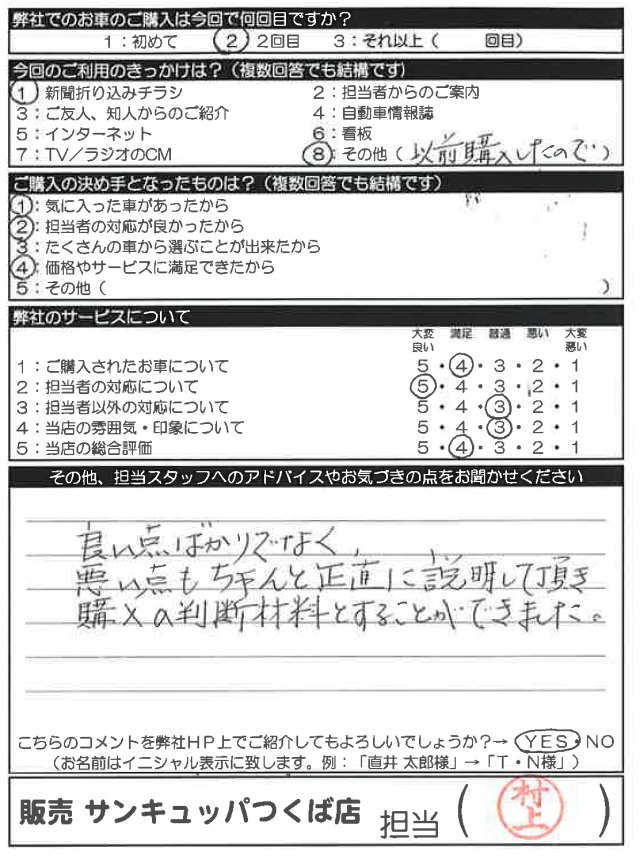 弊社でのお車のご購入は今回で何回目ですか？
1：初めて　2：2回目　3：それ以上（　　回目）
今回のご利用のきっかけは？（複数回答でも結構です）
1：新聞折り込みチラシ　2：担当者からのご案内
3：ご友人、知人からのご紹介　4：自動車情報誌
5：インターネット　6：看板
7：TV／ラジオのCM　8：その他（以前購入したので）
ご購入の決め手となったものは？（複数回答でも結構です）
1：気に入った車があったから
2：担当者の対応が良かったから
3：たくさんの車から選ぶことが出来たから
4：価格やサービスに満足できたから
5：その他（　　　）
弊社のサービスについて
大変良い　満足　普通　悪い　大変悪い
1：ご購入されたお車について　5・4・3・2・1
2：担当者の対応について　5・4・3・2・1
3：担当者以外の対応について　5・4・3・2・1
4：当店の雰囲気・印象について　5・4・3・2・1
5：当店の総合評価　5・4・3・2・1
その他、担当スタッフへのアドバイスやお気づきの点をお聞かせください
良い点ばかりでなく、
悪い点もちゃんと正直に説明して頂き
購入の判断材料とすることができました。
こちらのコメントを弊社HP上でご紹介してもよろしいでしょうか？→ YES・NO
（お名前はイニシャル表示に致します。例：「直井 太郎様」→「T・N様」）
販売 サンキュッパつくば店　担当（村上）